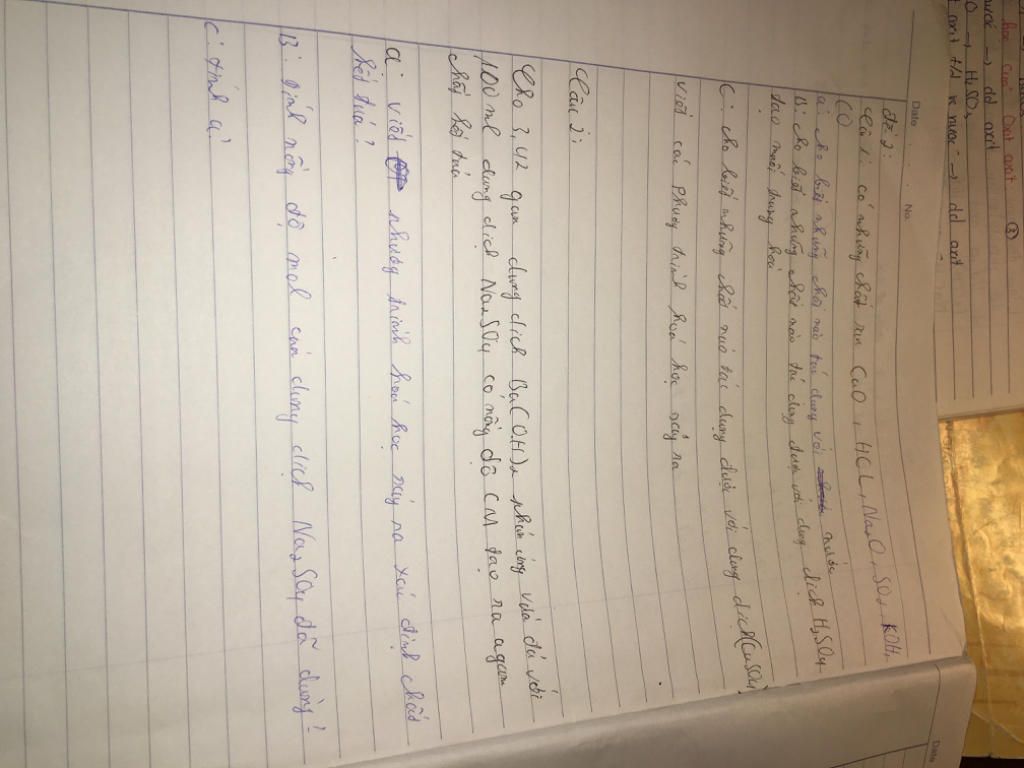 học của Oxit axit ②
nước → dd axit
O → H₂SO₃
t axit t/d k nước → dd axit
Date No.
đề 2:
Câu 1: có những chất sau CuO, HCl, Na₂O, SO₂, KOH,
CO
a: cho biết những chất nào tác dụng với nước
B: cho biết những chất nào tác dụng được với dung dịch H₂SO₄
tạo muối trung hoà
C: cho biết những chất nào tác dụng được với dung dịch (CuSO₄)
viết các phương trình hoá học xảy ra
Câu 2:
Cho 3,42 gam dung dịch Ba(OH)₂ phản ứng vừa đủ với
100 ml dung dịch Na₂SO₄ có nồng độ CM tạo ra a gam
chất kết tủa
a: viết phương trình hoá học xảy ra xác định chất
kết tủa?
B: tính nồng độ mol của dung dịch Na₂SO₄ đã dùng!
C: tính a?
Date